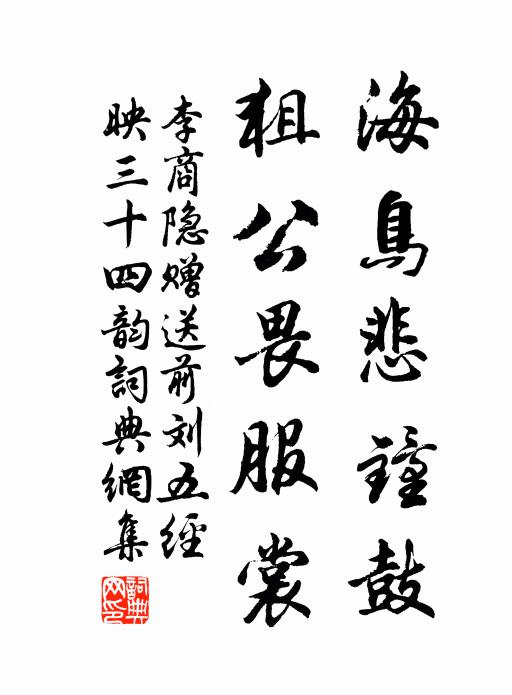 海鳥悲鐘鼓
狙公畏服裳
李商隐赠送前刘五經
映三十四韵詞典網集